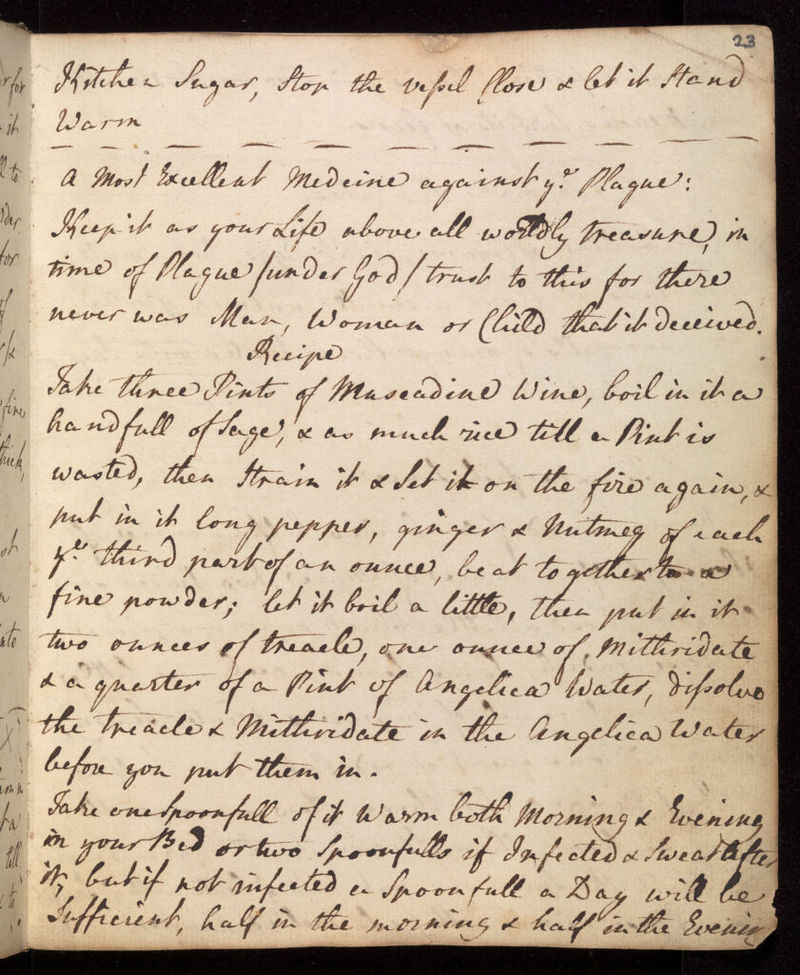 23
Kitchen Sugar, Stop the vessel Close & let it Stand
Warm
A Most Excellent Medeine against yͤ. Plague:
Keep it as your Life above all worldly treasure, in
time of Plague /under God/ trust to this for there
never was Man, Woman or Child that it deceived.
Recipe
Take three Pints of Muscadine Wine, boil in it a
handfull of Sage, & as much rue till a Pint is
wasted, then Strain it & Set it on the fire again, &
put in it long pepper, ginger & Nutmeg of each
yͤ. third part of an ounce, beat together to a
fine powder; let it boil a little, then put in it
two ounces of treacle, one ounce of Mithridate
& a quarter of a Pint of Angelica Water, dissolve
the treacle & Mithridate in the Angelica Water
before you put them in.
Take one Spoonfull of it Warm both Morning & Evening
in your Bed or two Spoonfulls if Infected & Sweat after
it, but if not infected a Spoonfull a Day will be
Sufficient, half in the morning & half in the Evening